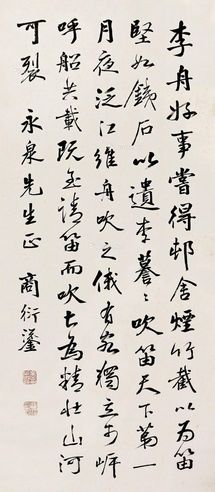 李舟好事嘗得邨舍煙竹截以為笛
堅如鐵石以遺李謩〻吹笛天下第一
月夜泛江維舟吹之俄有客獨立于岸
呼船共載既至請笛而吹甚為精壯山河
可裂
永泉先生正
商衍鎏